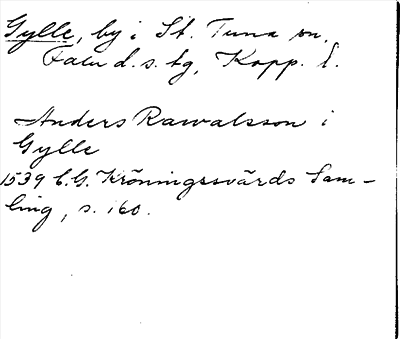 Gylle, by i St. Tuna sn.
Falu d. s. tg, Kopp. l.
Anders Rawalsson i
Gylle
1539 C.G. Kröningssvärds Sam-
ling, s. 160.